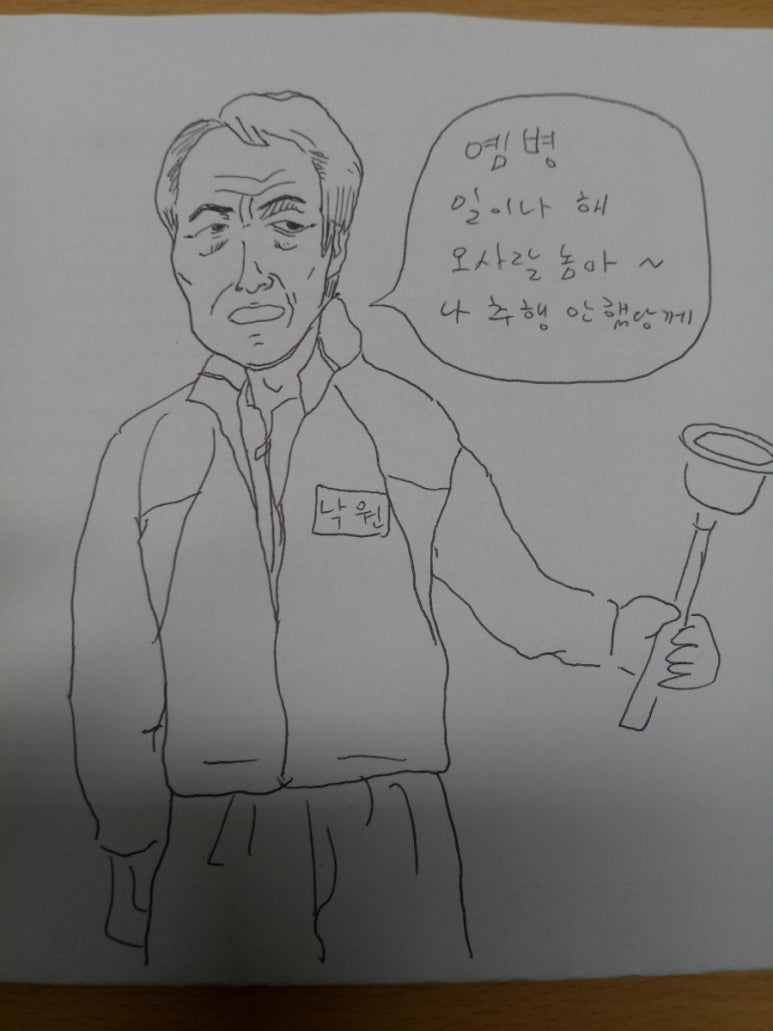 옘병
일이나 해
오사랄 놈아 ~
나 추행 안햄당께
낙원